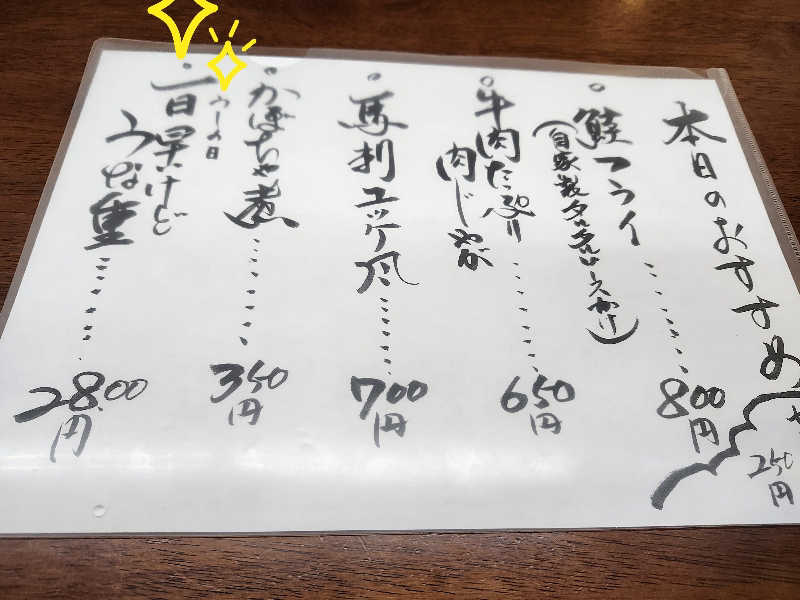 本日のおすすめ
鮭フライ
(自家製タルタルソースかけ)
800円
牛肉たっぷり
肉じゃが
650円
馬刺ユッケ風
700円
かぼちゃ煮
350円
うしの日
一日早いけど
うな重
2800円
250円